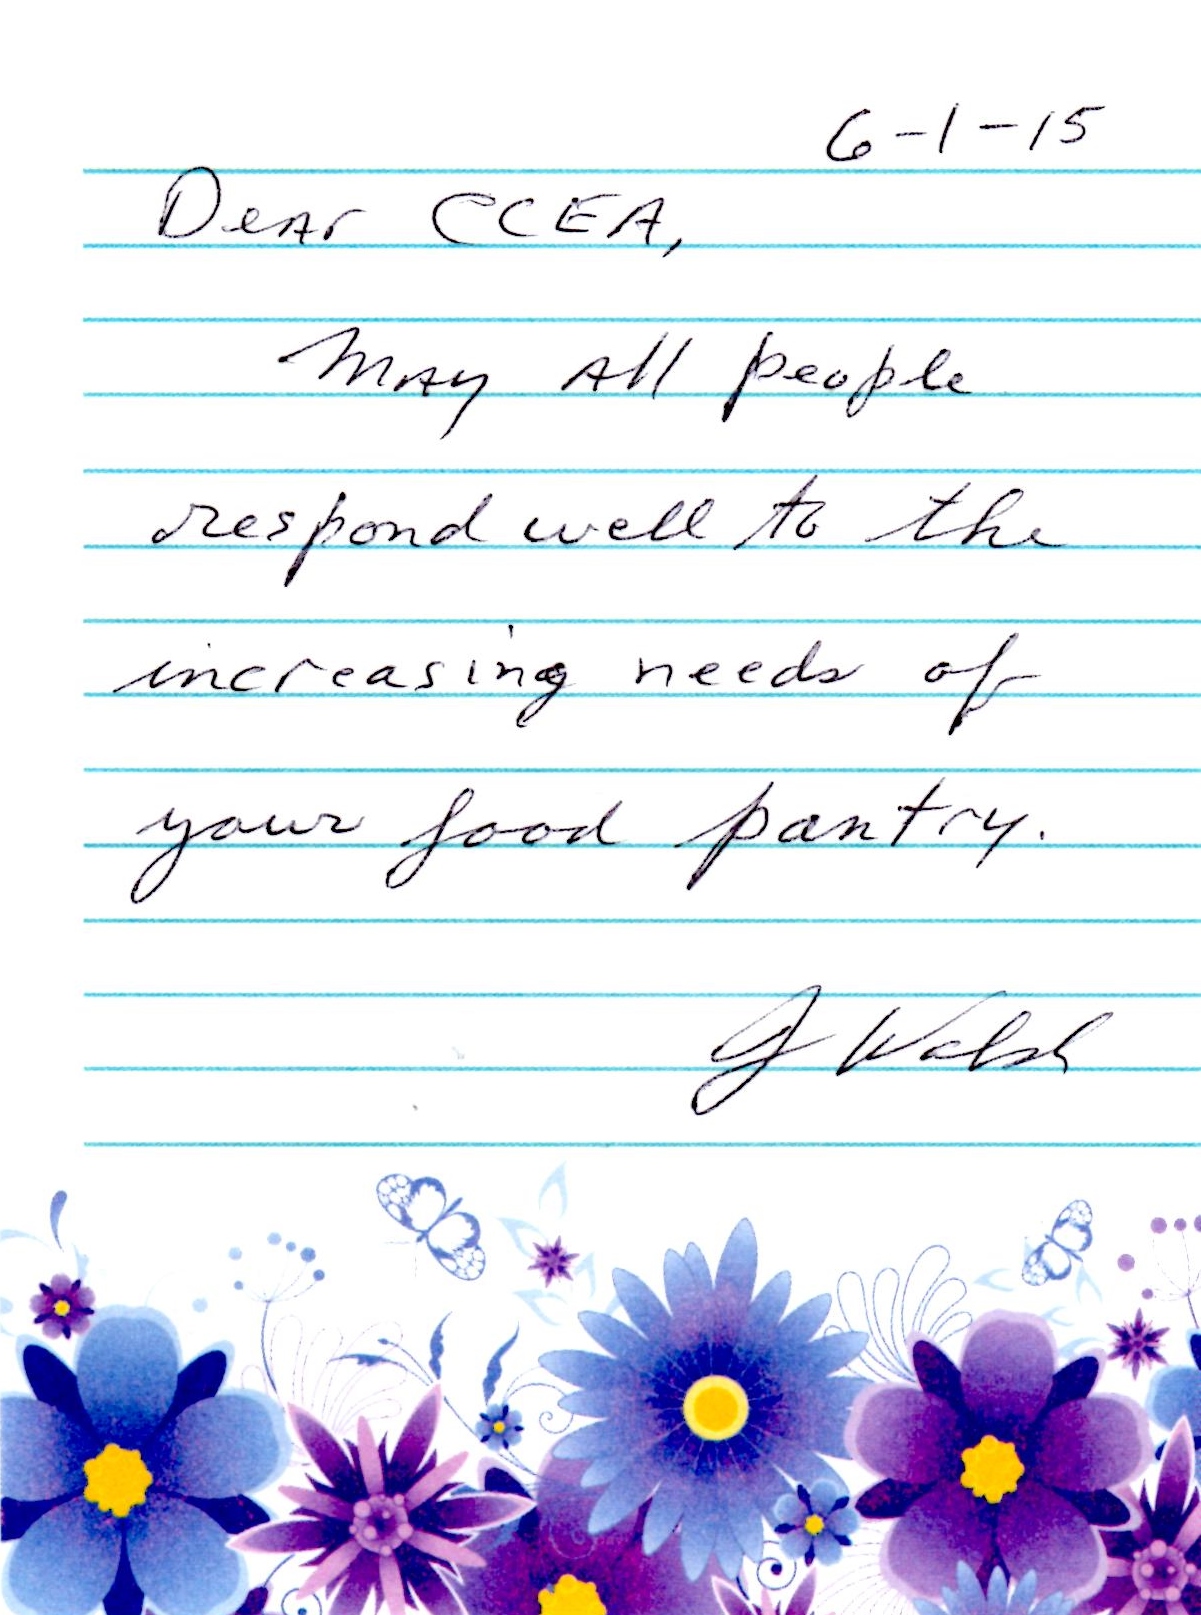 6-1-15
Dear CCEA,
May all people
respond well to the
increasing needs of
your food pantry.
J Walsh